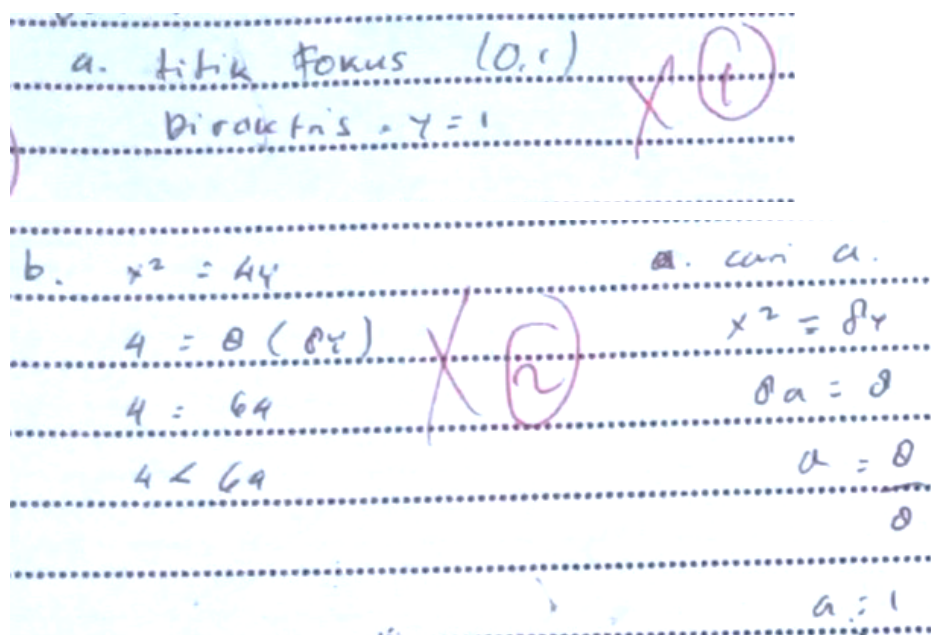 a. titik Fokus (0,1)
Direktris . y = 1
X 1
b. x² = 4y
4 = 8 ( 8y )
4 = 64
4 < 64
X 2
a. cari a.
x² = 8y
8a = 8
a = 8
8
a = 1